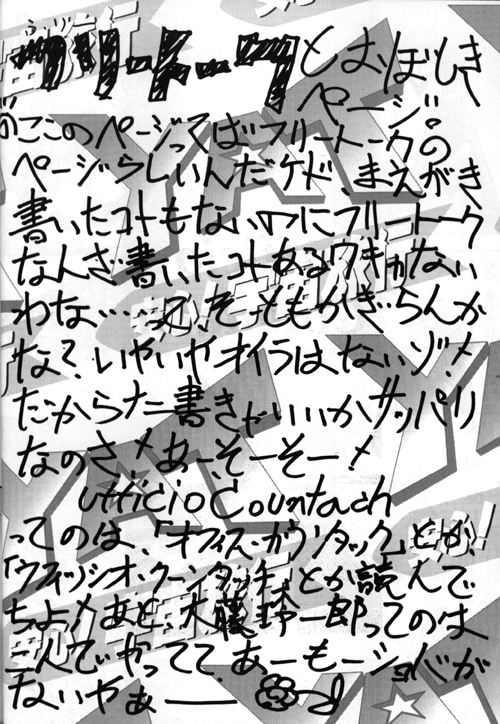 フリートークとおぼしき
ページ!
このページってばフリートークの
ページらしいんだケド、まえがき
書いたコトもないのにフリートーク
なんざ書いたコトあるワキがない
わな… って、そーともかぎらんか
な?いやいやオイラはないゾ!
だからなに書きゃいいかサッパリ
なのさ!あーそーそー!
Ufficio Countach
ってのは、「オフィス・カウンタック」とか
「ウフィッシオ・クーンタッチ」とか読んで
ちょ!あと、大藤玲一郎ってのは
二人でやってて、あーもージョバが
ないやぁ——